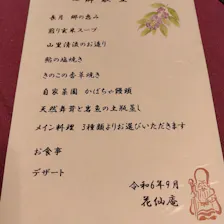 御献立
長月 郷の恵み
煎り玄米スープ
山里清流のお造り
鮎の塩焼き
きのこの香草焼き
自家菜園 かぼちゃ饅頭
天然舞茸と岩魚の土瓶蒸し
メイン料理 3種類よりお選びいただきます
お食事
デザート
令和6年9月
花仙庵